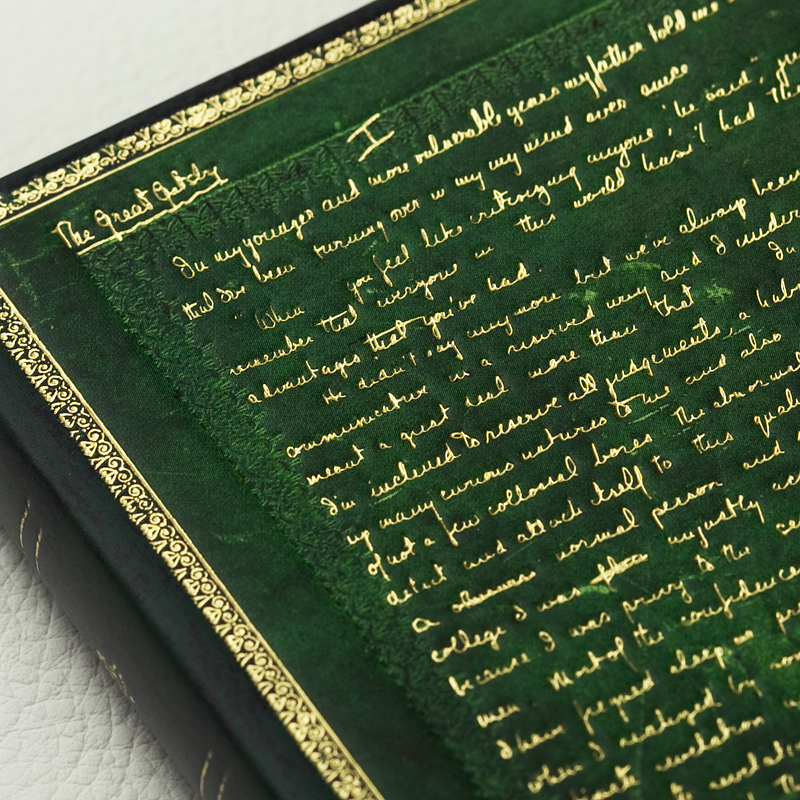 The Great Gatsby
I
In my younger and more vulnerable years my father told me
that I've been turning over in my my mind ever since
"When you feel like critisizing anyone," he said, "ju
remember that everyone in this world hasn't had the
advantages that you've had.
He didn't say any more but we've always been
communicative in a reserved way and I under
meant a great deal more than that In
I'm inclined to reserve all judgements, a habi
up many curious natures to me and also
of not a few collossal bores The abnormal
detect and attach itself to this quali
a normal person and
college I was unjustly acc
because I was privy to the
men Most of the confidences
I have feigned sleep
when I realized by
intimate revelation